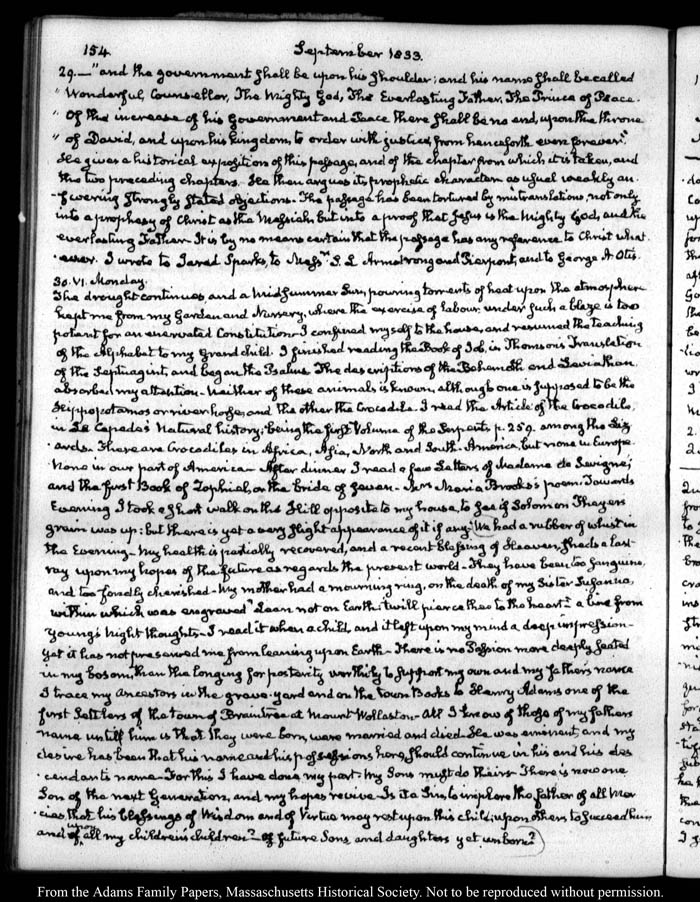 154 September 1833.
29.— "and the government shall be upon his shoulder; and his name shall be called
" Wonderful, Counsellor, The Mighty God, The Everlasting Father, The Prince of Peace.
" Of the increase of his Government and Peace there shall be no end, upon the throne
" of David, and upon his kingdom, to order with justice, from henceforth even forever."
He gives a historical exposition of this passage, and of the chapter from which it is taken, and
the two preceding chapters. He then argues its prophetic character as usual weakly an-
-swering strongly stated objections. The passage has been tortured by mistranslation, not only
into a prophesy of Christ as the Messiah, but into a proof that Jesus is the Mighty God, and the
everlasting Father— It is by no means certain that the passage has any reference to Christ what-
-ever. I wrote to Jared Sparks, to Messrs. S. L. Armstrong and Pierpont, and to George A. Otis.
30. VI. Monday.
The drought continues, and a Midsummer Sun, pouring torrents of heat upon the atmosphere
kept me from my Garden and Nursery, where the exercise of labour, under such a blaze is too
potent for an enervated Constitution— I confined myself to the house, and resumed the teaching
of the Alphabet to my Grand child. I finished reading the Book of Job, in Thomson's Translation
of the Septuagint, and began the Psalms. The descriptions of the Behemoth and Leviathan,
absorbed my attention— Neither of these animals is known, although one is supposed to be the
Hippopotamos or river horse, and the other the Crocodile. I read the Article of the Crocodile,
in La Cepede's Natural history; being the first Volume of the Serpents, p. 259. among the Liz-
-ards. There are Crocodiles in Africa, Asia, North and South-America, but none in Europe.
None in our part of America— After dinner I read a few Letters of Madame de Sevigné;
and the first Book of Zophiel, or the bride of Seven— Mrs Maria Brooks's poem. Towards
Evening I took a short walk on the Hill opposite to my house, to see if Solomon Thayer's
grain was up: but there is yet a very slight appearance of it if any. We had a rubber of whist in
the Evening— My health is partially recovered, and a recent blessing of Heaven, sheds a last
ray upon my hopes of the future as regards the present world— They have been too sanguine,
and too fondly cherished— My mother had a mourning ring, on the death of my Sister Susanna,
within which was engraved "Lean not on Earth; twill pierce thee to the heart"— a line from
Young's Night thoughts— I read it when a child, and it left upon my mind a deep impression—
yet it has not preserved me from leaning upon Earth— There is no Passion more deeply seated
in my bosom, than the longing for posterity worthily to support my own and my father's name
I trace my Ancestors in the grave-yard and on the Town Books to Henry Adams one of the
first settlers of the town of Braintree at Mount Wollaston— All I know of those of my father's
name untill him is that they were born, were married and died— He was eminent, and my
desire has been that his name and his possessions here, should continue in his and his des-
-cendants name— For this I have done my part— My Sons must do theirs— There is now one
Son of the next Generation, and my hopes revive— Is it a Sin, to implore the father of all Mer-
cies that his blessings of Wisdom and of Virtue may rest upon this child, upon others to succeed him,
and upon all my children's children?— of future Sons and daughters yet unborn?
From the Adams Family Papers, Massachusetts Historical Society. Not to be reproduced without permission.